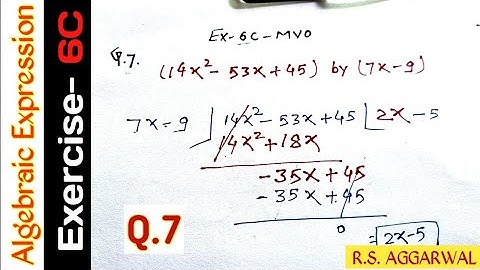 Algebraic Expression
Exercise- 6C
Ex-6C-MVO
Q.7.
(14x² - 53x + 45) by (7x - 9)
7x = 9 | 14x² - 53x + 45 | 2x - 5
14x² + 18x
- 35x + 45
- 35x + 45
0
= 2x - 5
Q.7
R.S. AGGARWAL